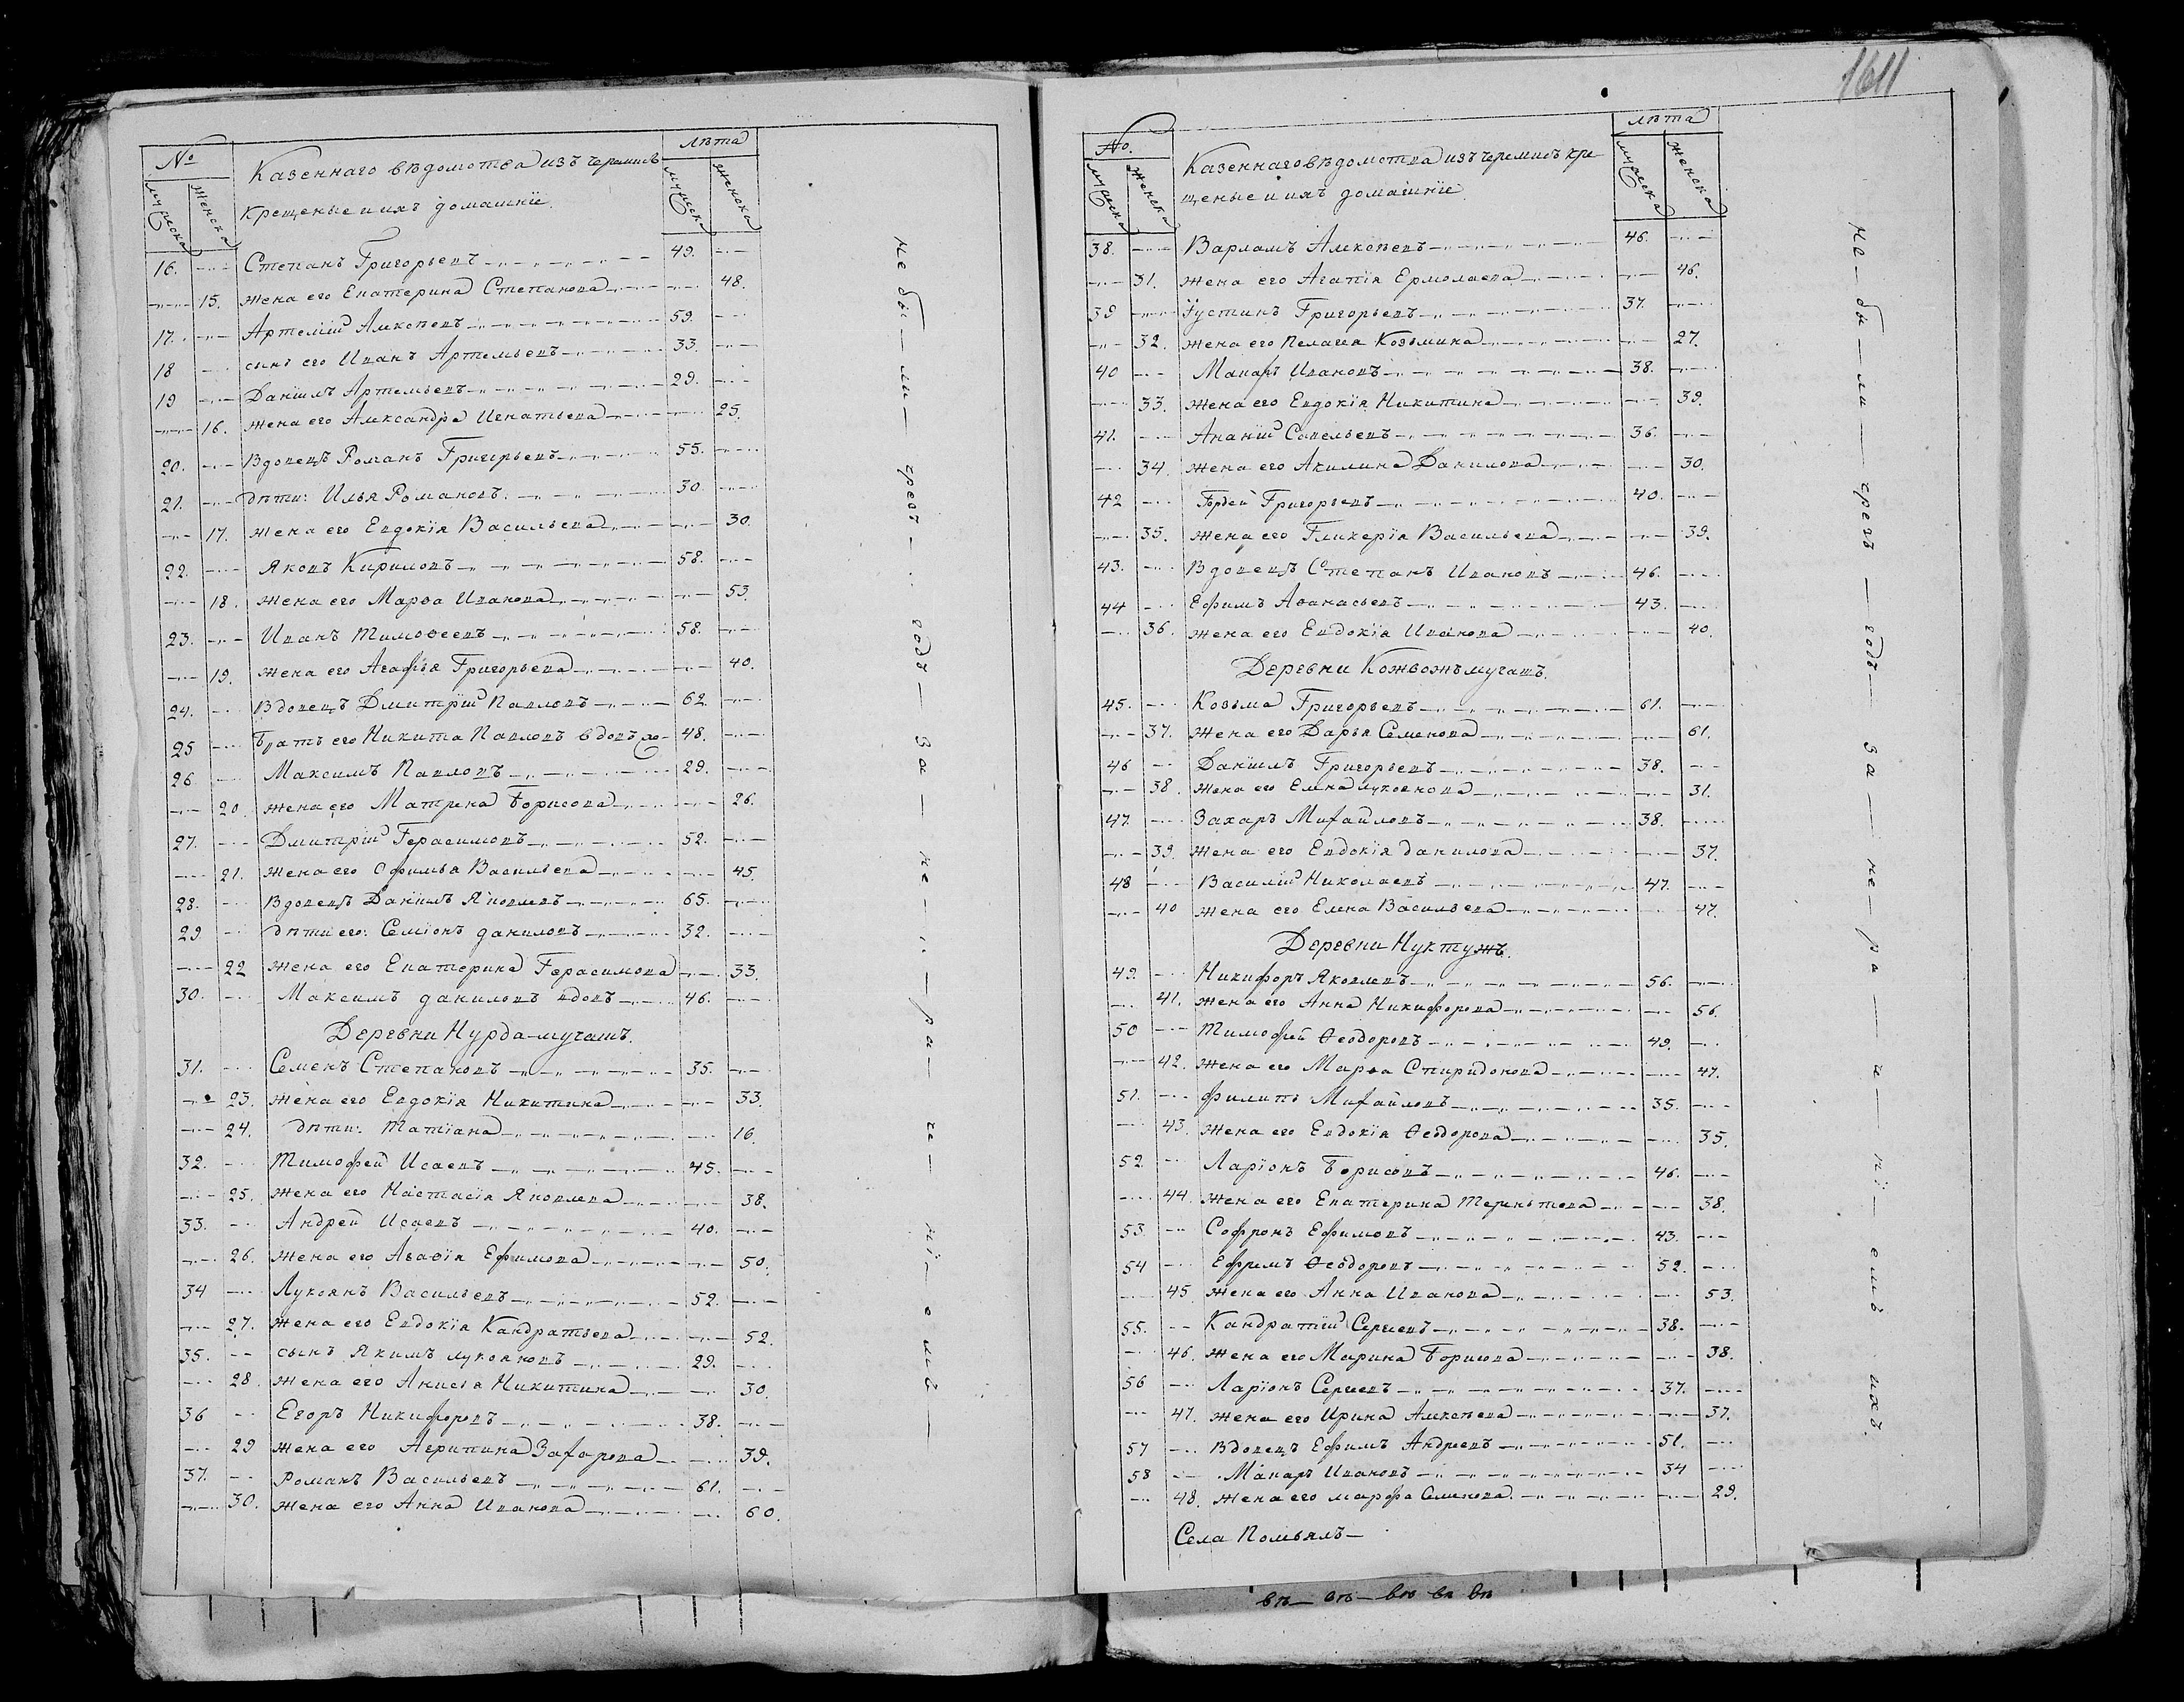 №
Казеннаго вѣдомства изъ черемисъ
лѣта
мужеска
женска
крещеные и ихъ домашніе.
мужеска
женска
16. Степанъ Григорьевъ 49.
15. жена его Екатерина Степанова 48.
17. Артемій Алексѣевъ 59.
18 сынъ его Иванъ Артемьевъ 33.
19 Даніилъ Артемьевъ 29.
16. жена его Александра Игнатьева 25.
20. Вдовецъ Романъ Григорьевъ 55.
21. дѣти: Илья Романовъ. 30.
17. жена его Евдокія Васильева 30.
22. Яковъ Кириловъ 58.
18. жена его Марѳа Иванова 53.
23. Иванъ Тимоѳеевъ 58.
19. жена его Агафья Григорьева 40.
24. Вдовецъ Дмитрій Павловъ 62.
25 братъ его Никита Павловъ вдовъ 48.
26. Максимъ Павловъ 29.
20. жена его Матрена Борисова 26.
27. Дмитрій Герасимовъ 52.
21. жена его Офимья Васильева 45.
28. Вдовецъ Даніилъ Яковлевъ 65.
29 дѣти его: Семіонъ даниловъ 32.
22 жена его Екатерина Герасимова 33.
30. Максимъ даниловъ вдовъ 46.
Деревни Нурда-мучашъ.
31. Семенъ Степановъ 35.
23. жена его Евдокія Никитина 33.
24. дѣти: Татіана 16.
32. Тимофей Исаевъ 45.
25. жена его Настасія Яковлева 38.
33. Андрей Исаевъ 40.
26. жена его Агаѳія Ефимова 50.
34 Лукоянъ Васильевъ 52.
27. жена его Евдокія Кандратьева 52.
35. сынъ Якимъ лукояновъ 29.
28. жена его Анисія Никитина 30.
36 Егоръ Никифоровъ 38.
29 жена его Агрипина Захарова 39.
37. Романъ Васильевъ 61.
30. жена его Анна Иванова 60.
не бы — ли — чрезъ — годъ — за — не — ра — че — ні — емъ
1611
№.
Казеннаго вѣдомства изъ черемисъ кре
лѣта
мужеска
женска
щеные и ихъ домашніе.
мужеска
женска
38. Варламъ Алексѣевъ 46.
31. жена его Агапія Ермолаева 46.
39 Іустинъ Григорьевъ 37.
32. жена его Пелагея Козьмина 27.
40 Макаръ Ивановъ 38.
33. жена его Евдокія Никитина 39.
41. Ананій Савельевъ 36.
34. жена его Акилина Данилова 30.
42 Гордей Григорьевъ 40.
35. жена его Гликерія Васильева 39.
43. Вдовецъ Степанъ Ивановъ 46.
44 Ефимъ Аѳанасьевъ 43.
36. жена его Евдокія Иванова 40.
Деревни Кожвожъмучашъ.
45. Козьма Григорьевъ 61.
37. жена его Дарья Семенова 61.
46 Даніилъ Григорьевъ 38.
38. жена его Елена лукоянова 31.
47. Захаръ Михайловъ 38.
39. жена его Евдокія данилова 37.
48 Василій Николаевъ 47.
40 жена его Елена Васильева 47.
Деревни Нуктужъ.
49. Никифоръ Яковлевъ 56.
41. жена его Анна Никифорова 56.
50 Тимофей Ѳеодоровъ 49.
42. жена его Марѳа Спиридонова 47.
51. филипъ Михайловъ 35.
43. жена его Евдокія Ѳеодорова 35.
52. Ларіонъ Борисовъ 46.
44. жена его Екатерина Терентьева 38.
53. Софронъ Ефимовъ 43.
54 Ефремъ Ѳеодоровъ 52.
45. жена его Анна Иванова 53.
55. Кандратій Сергеевъ 38.
46. жена его Марина Борисова 38.
56 Ларіонъ Сергеевъ 37.
47. жена его Ирина Алексѣева 37.
57 Вдовецъ Ефимъ Андреевъ 51.
58 Макаръ Ивановъ 34
48. жена его марфа Семенова. 29.
Села Помьялъ —
не — бы — ли — чрезъ — годъ — за — не — ра — че — ні — емъ ихъ.